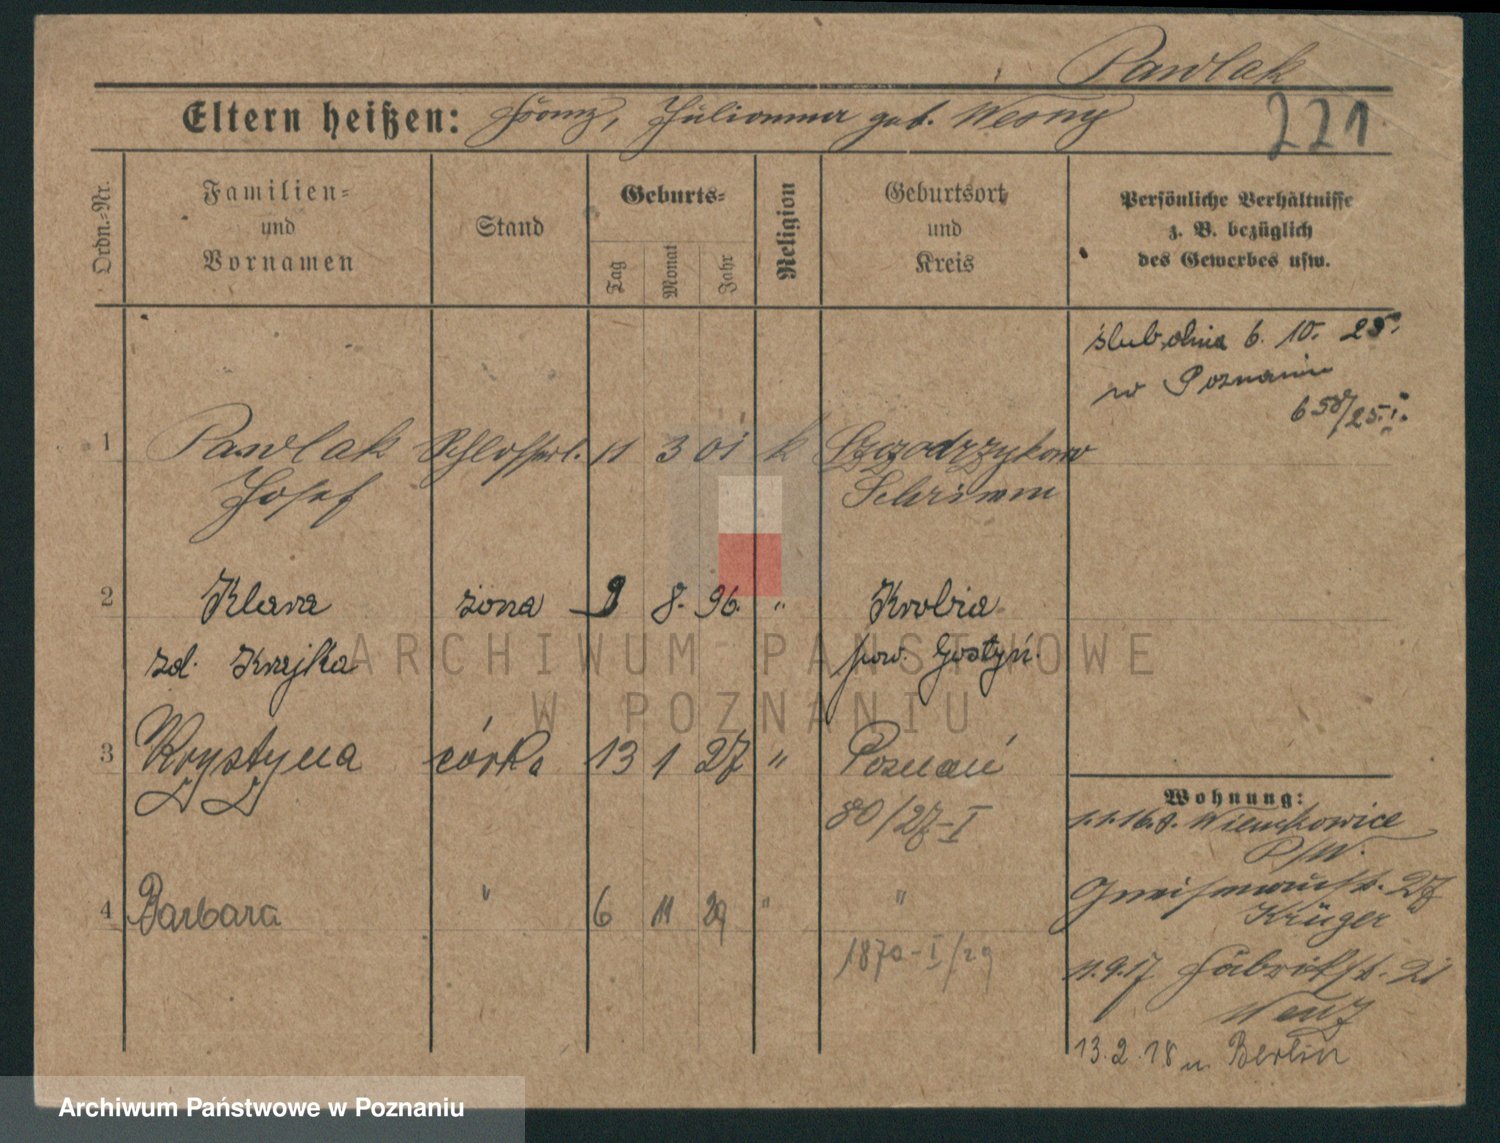 Pawlak
Eltern heißen: Franz, Julianna geb. Wesny
221
Ordn.-Nr.
Familien-
und
Vornamen
Stand
Geburts-
Tag
Monat
Jahr
Religion
Geburtsort
und
Kreis
Persönliche Verhältnisse
z. B. bezüglich
des Gewerbes usw.
ślub dnia 6. 10. 25.
w Poznaniu
658/25.I.
1 Pawlak Schlosserl. 11 3 01 k Szczodrzykowo
Josef Schrimm
2 Klara żona 9 8. 96. " Krobia
zd. Krajka pow. Gostyń.
3 Krystyna córka 13 1 27 " Poznań
80/27-I
4 Barbara " 6 11 29 " "
1870-I/29
Wohnung:
Gneisenaustr. 27
Krüger
11.9.17 Fabrikstr. 21
13.2.18 n. Berlin
ARCHIWUM PAŃSTWOWE
W POZNANIU
Archiwum Państwowe w Poznaniu